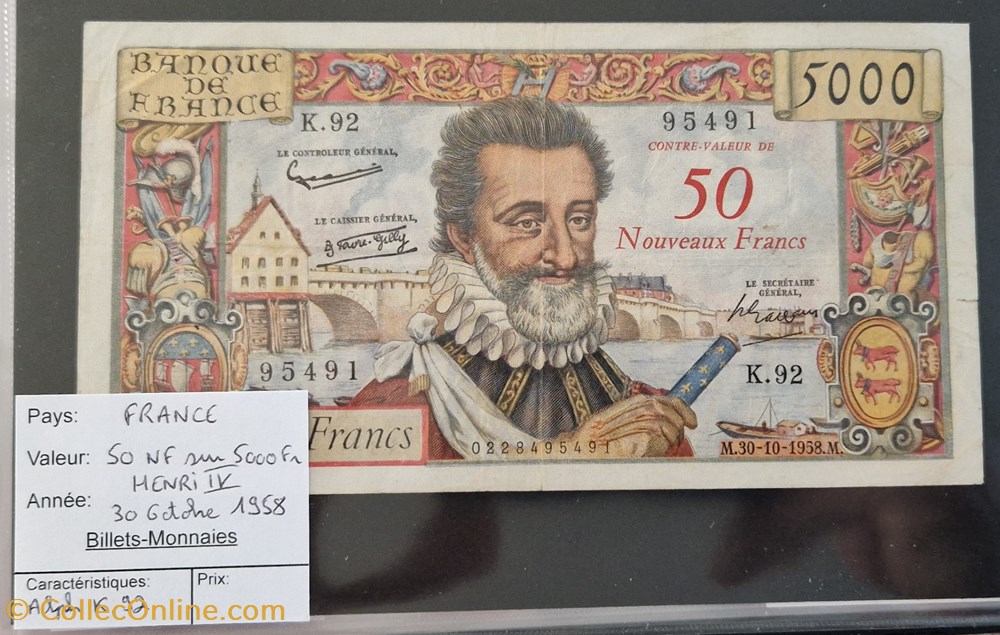 BANQUE
DE
FRANCE
5000
K.92
95491
LE CONTROLEUR GÉNÉRAL,
CONTRE-VALEUR DE
50
Nouveaux Francs
LE CAISSIER GÉNÉRAL,
G Favre-Gilly
LE SECRÉTAIRE
GÉNÉRAL,
95491
K.92
Francs
0228495491
M.30-10-1958.M.
Pays: FRANCE
Valeur: 50 NF sur 5000 Fr
HENRI IV
Année: 30 Octobre 1958
Billets-Monnaies
Caractéristiques:
Prix:
Alph K 92
© CollecOnline.com